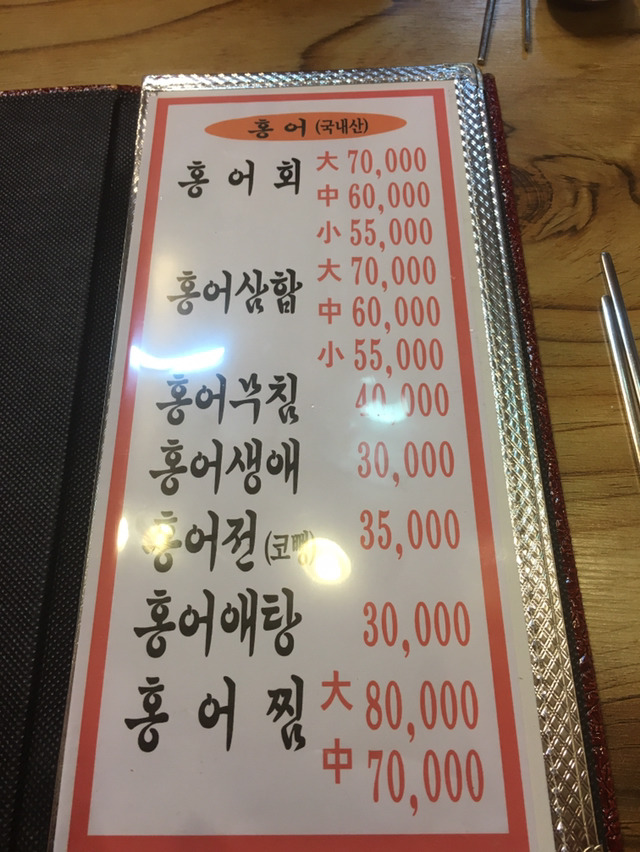 홍 어 (국내산)
홍 어 회 大 70,000
中 60,000
小 55,000
홍어삼합 大 70,000
中 60,000
小 55,000
홍어무침 40,000
홍어생애 30,000
홍어전 35,000
홍어애탕 30,000
홍 어 찜 大 80,000
中 70,000